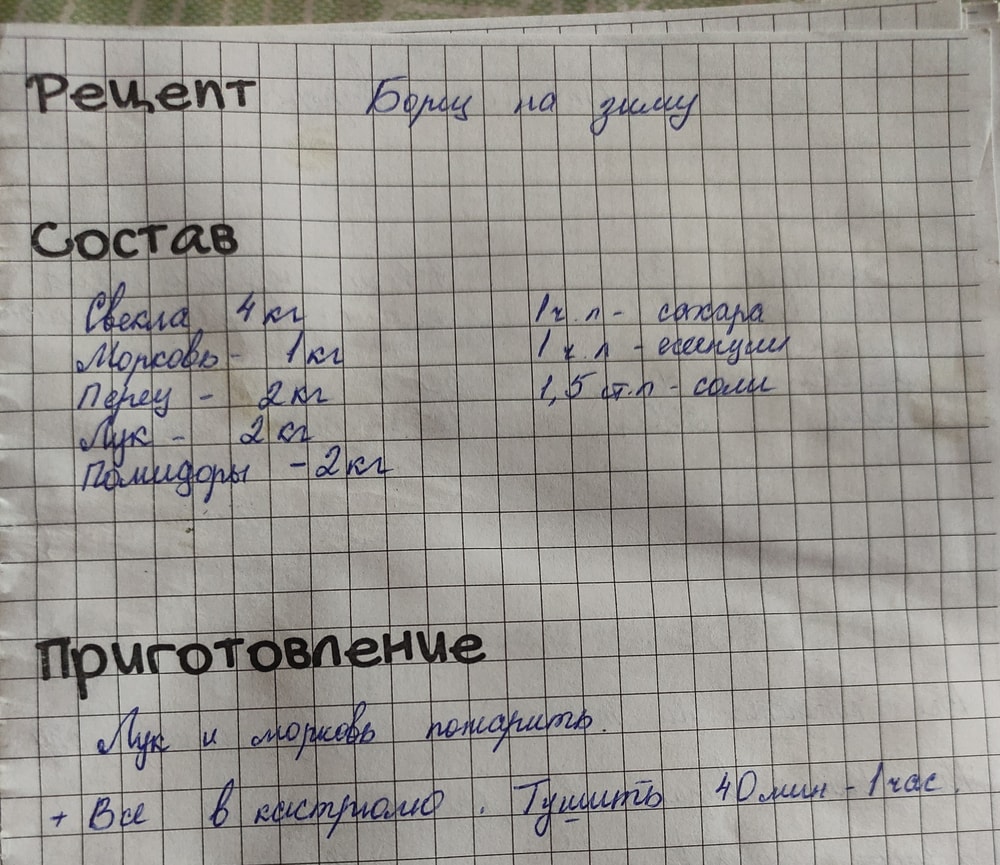 Рецепт Борщ на зиму
Состав
Свекла 4 кг
Морковь - 1 кг
Перец - 2 кг
Лук - 2 кг
Помидоры - 2 кг
1 ч. л - сахара
1 ч. л - есенции
1,5 ст.л - соли
Приготовление
Лук и морковь пожарить.
+ Все в кастрюлю. Тушить 40 мин - 1 час.